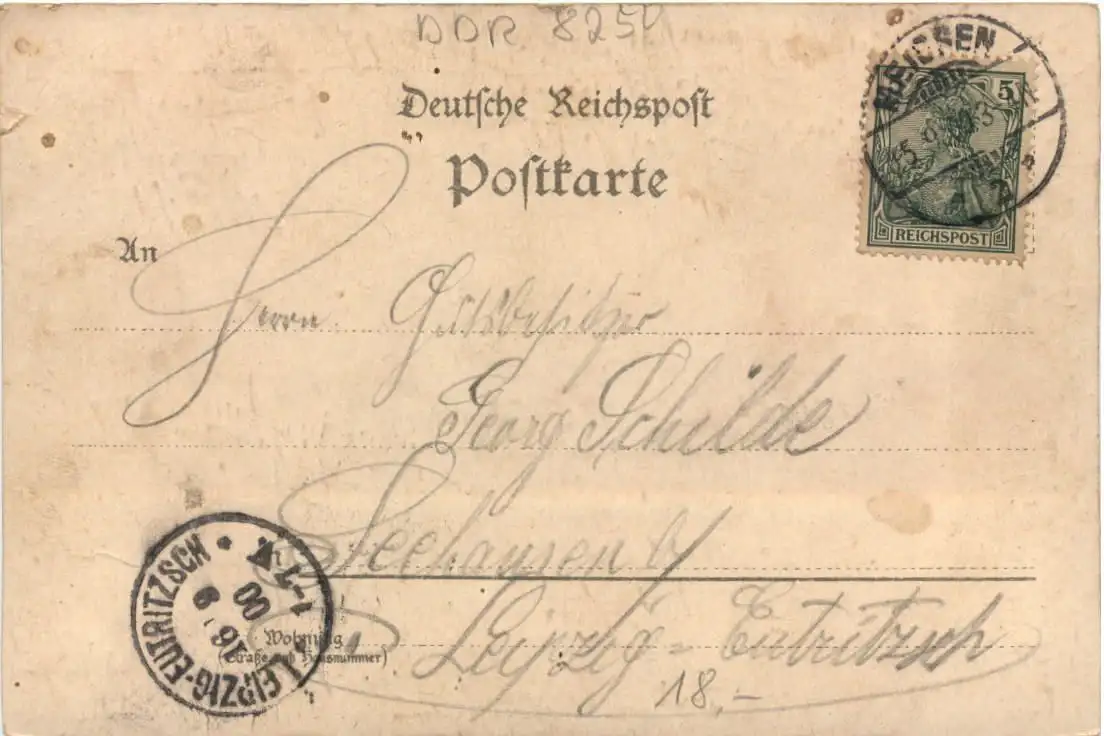 DDR 825
Deutsche Reichspost
Postkarte
MEISSEN
5
REICHSPOST
An
Herrn Gutsbesitzer
Georg Schilde
Seehausen b/
Leipzig-Eutritzsch
Wohnung
(Straße und Hausnummer)
LEIPZIG-EUTRITZSCH
16 9
00
18,-